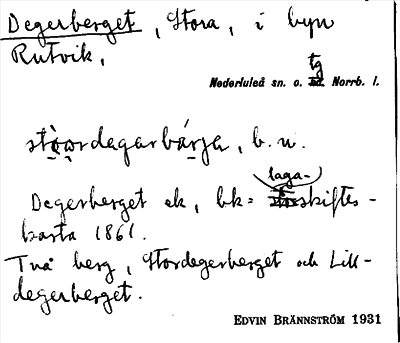 Degerberget, Stora, i byn
Rutvik,
Nederluleå sn. o. tg Norrb. l.
stò̩a̩rdegarbárja, b. n.
Degerberget ek, bk: laga-skiftes-
karta 1861.
Två berg, Stordegerberget och Lill-
degerberget.
EDVIN BRÄNNSTRÖM 1931